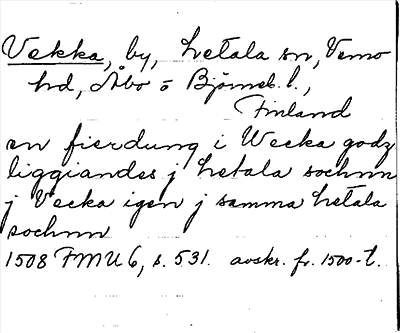 Vekka, by, Letala sn, Vemo
hd, Åbo o Björneb. l.,
Finland
en fierdung i Wecka godz
liggiandes j Letala sochnn
j Vecka igen j samma Letala
sochnn
1508 FMU 6, s. 531. avskr. fr. 1500-t.